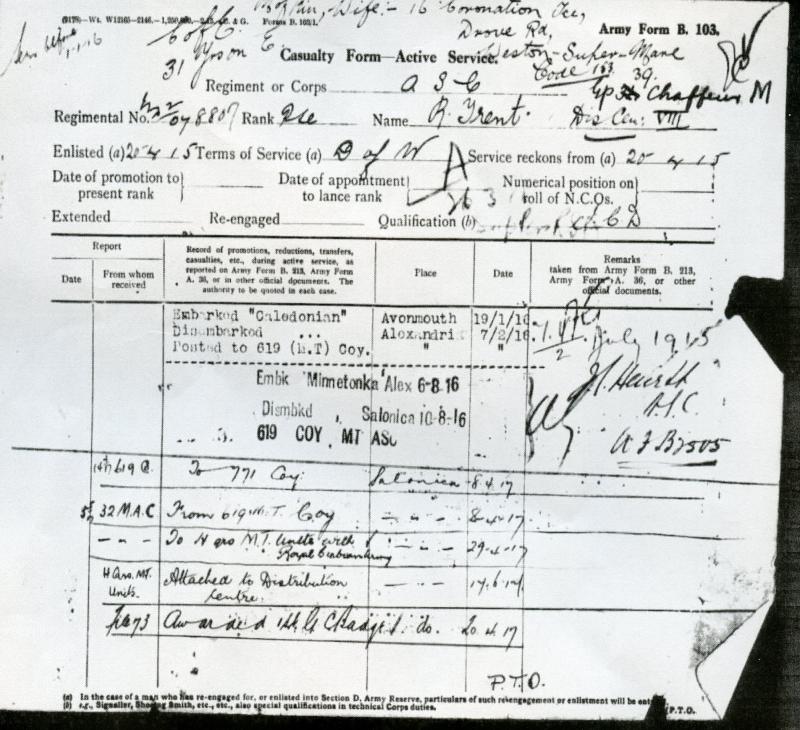 (9178)—Wt. W12165—2146. G. Forms B. 103/1.
Wife:- 16 Coronation Ter,
Drove Rd,
Weston-Super-Mare
Army Form B. 103.
Casualty Form—Active Service.
31
Code 39.
Chaffeur M
Regiment or Corps A S C
Regimental No. 078807 Rank Pte Name R. Trent. Dis Cen: VIII
Enlisted (a) 20 4 15 Terms of Service (a) D of W A Service reckons from (a) 20 4 15
Date of promotion to present rank Date of appointment to lance rank Numerical position on roll of N.C.Os.
Extended Re-engaged Qualification (b)
Report
Date From whom received
Record of promotions, reductions, transfers, casualties, etc., during active service, as reported on Army Form B. 213, Army Form A. 36, or in other official documents. The authority to be quoted in each case.
Place
Date
Remarks taken from Army Form B. 213, Army Form A. 36, or other official documents.
Embarked "Caledonian" Avonmouth 19/1/16
Disembarked ... Alexandri 7/2/16
Posted to 619 (M.T) Coy. " "
July 1915
Embk 'Minnetonka' Alex 6-8-16
Dismbkd , Salonica 10-8-16
619 COY, MT ASC
To 771 Coy. Salonica 8.4.17
32 M.A.C From 619 M.T. Coy - - - 8-4-17
- - - To H qrs M.T. Units with Royal - - - 29-4-17
H Qrs. M.T. Units. Attached to Distribution Centre. - - -
Awarded 1st G C Badge do. 20.4.17
P.T.O.
(a) In the case of a man who has re-engaged for, or enlisted into Section D. Army Reserve, particulars of such re-engagement or enlistment will be
(b) e.g., Signaller, Shoeing Smith, etc., etc., also special qualifications in technical Corps duties. P.T.O.